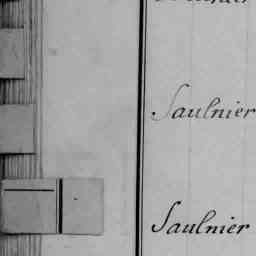 Saulnier
Saulnier